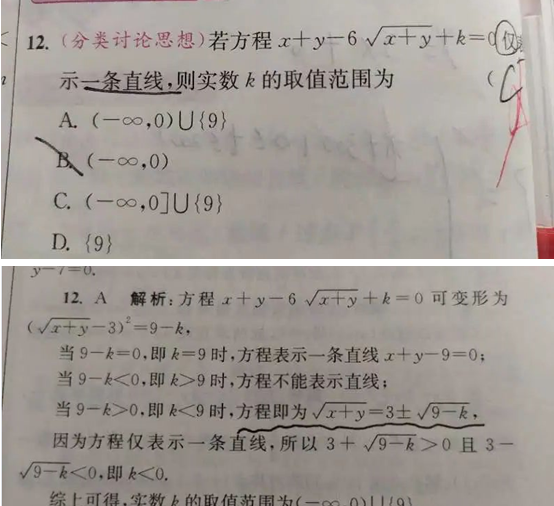 12. (分类讨论思想)若方程 x+y-6√(x+y)+k=0仅
示一条直线,则实数 k 的取值范围为 (
C
A. (-∞,0)∪{9}
B. (-∞,0)
C. (-∞,0]∪{9}
D. {9}
y-7=0.
12. A 解析:方程 x+y-6√(x+y)+k=0 可变形为
(√(x+y)-3)²=9-k,
当 9-k=0,即 k=9 时,方程表示一条直线 x+y-9=0;
当 9-k<0,即 k>9 时,方程不能表示直线;
当 9-k>0,即 k<9 时,方程即为√(x+y)=3±√(9-k),
因为方程仅表示一条直线,所以 3+√(9-k)>0 且 3-
√(9-k)<0,即 k<0.
综上可得,实数 k 的取值范围为(-∞,0)∪{9}